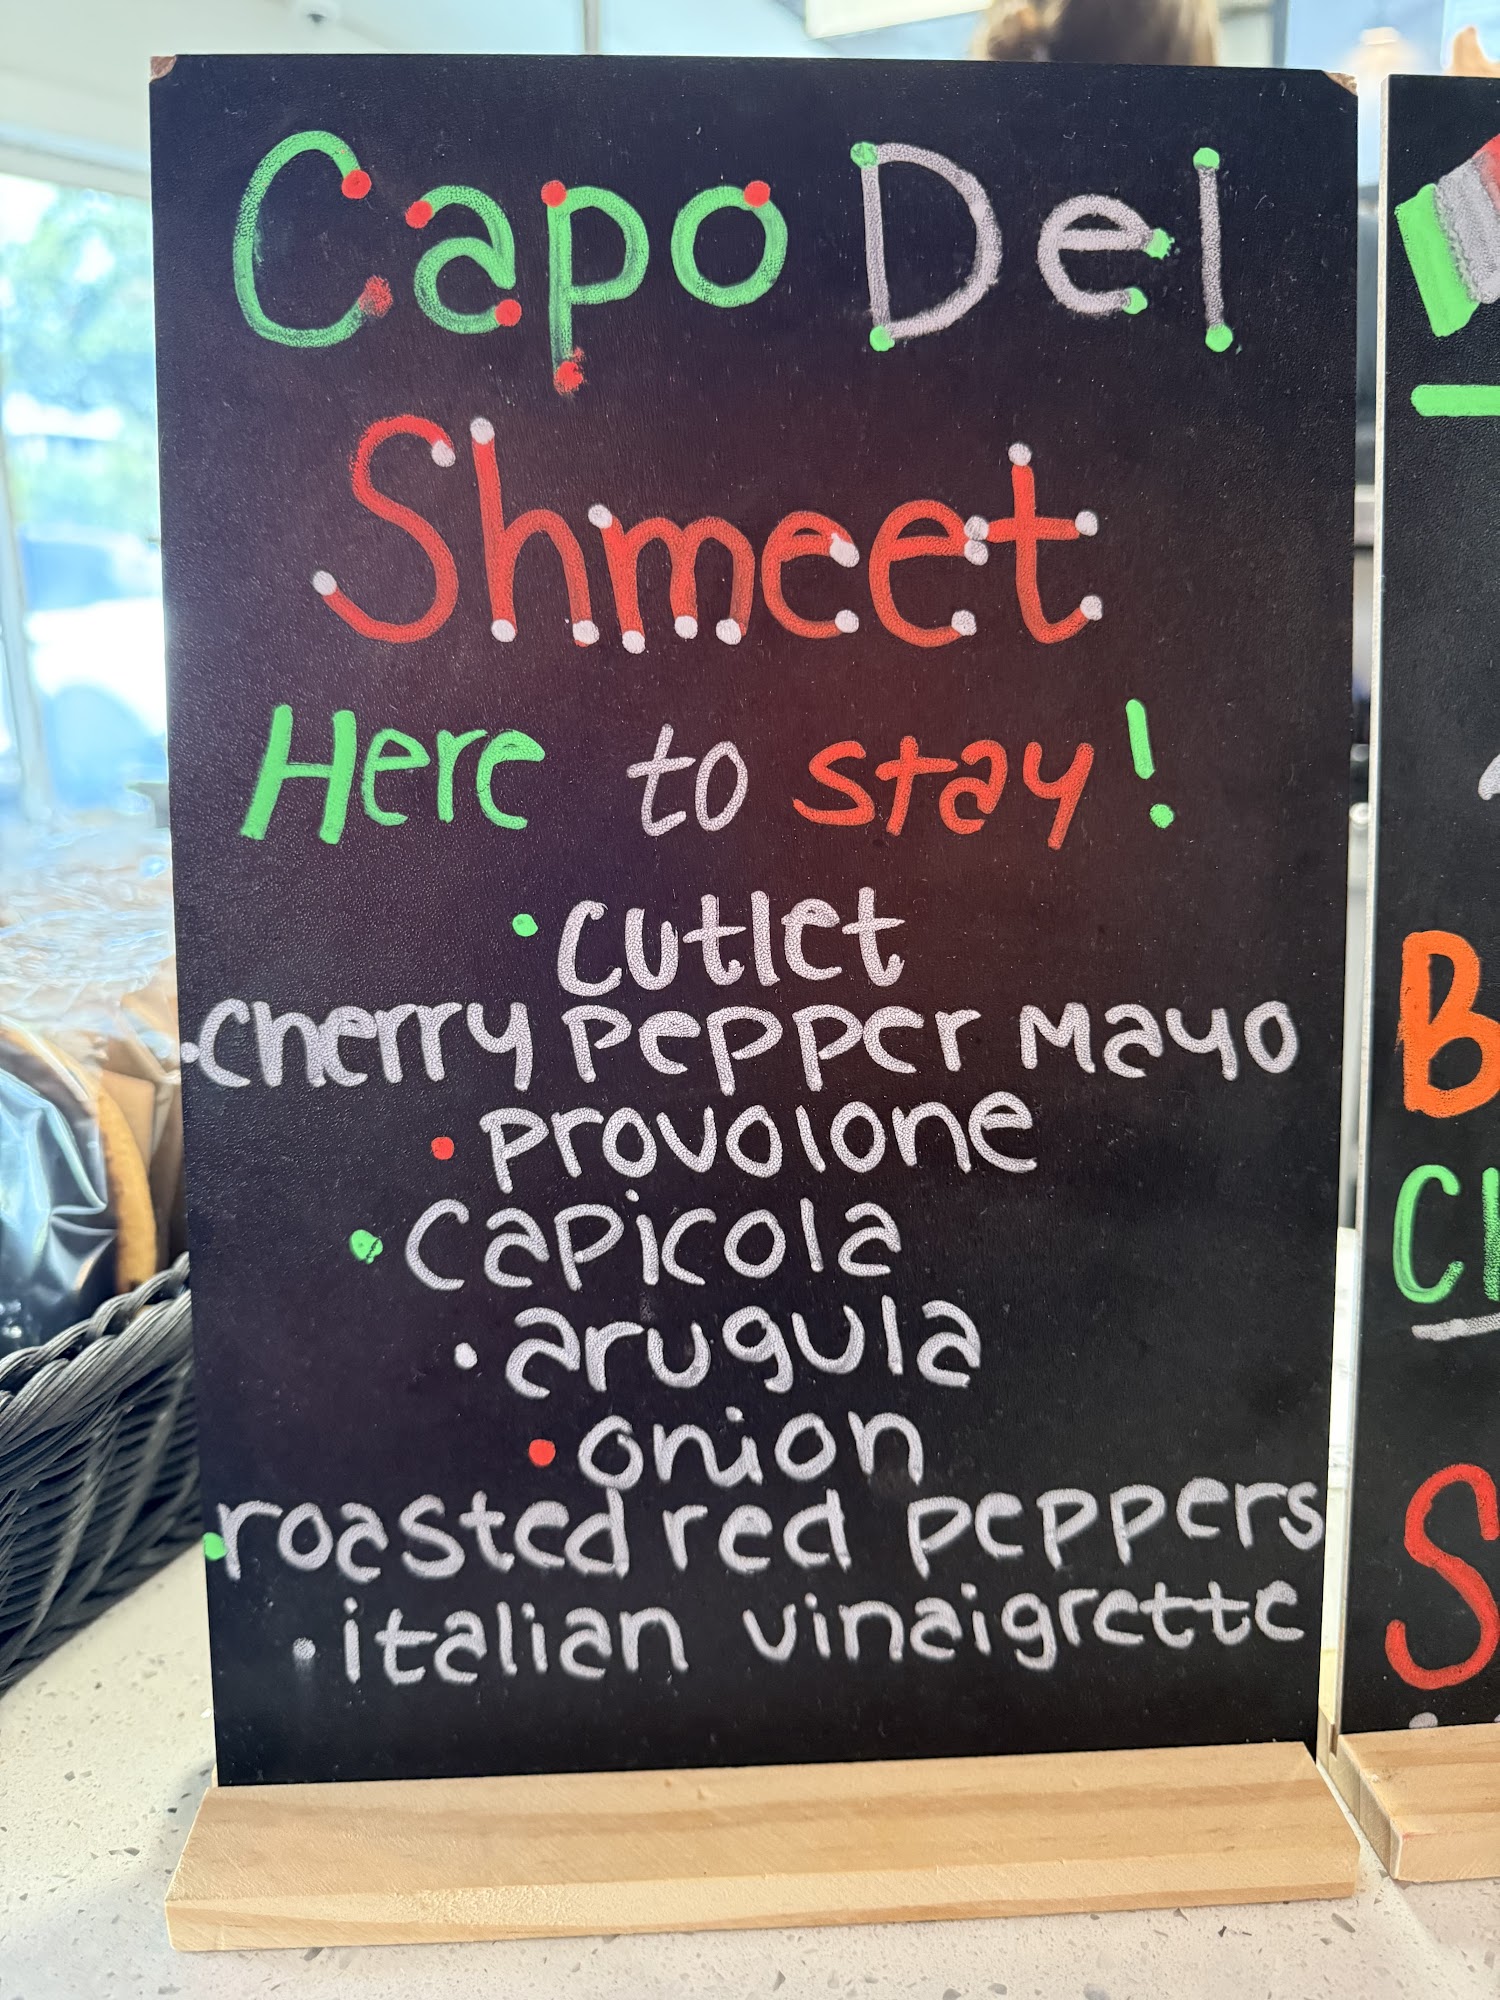 Capo Del
Shmeet
Here to stay!
• cutlet
• cherry pepper mayo
• provolone
• capicola
• arugula
• onion
• roasted red peppers
• italian vinaigrette